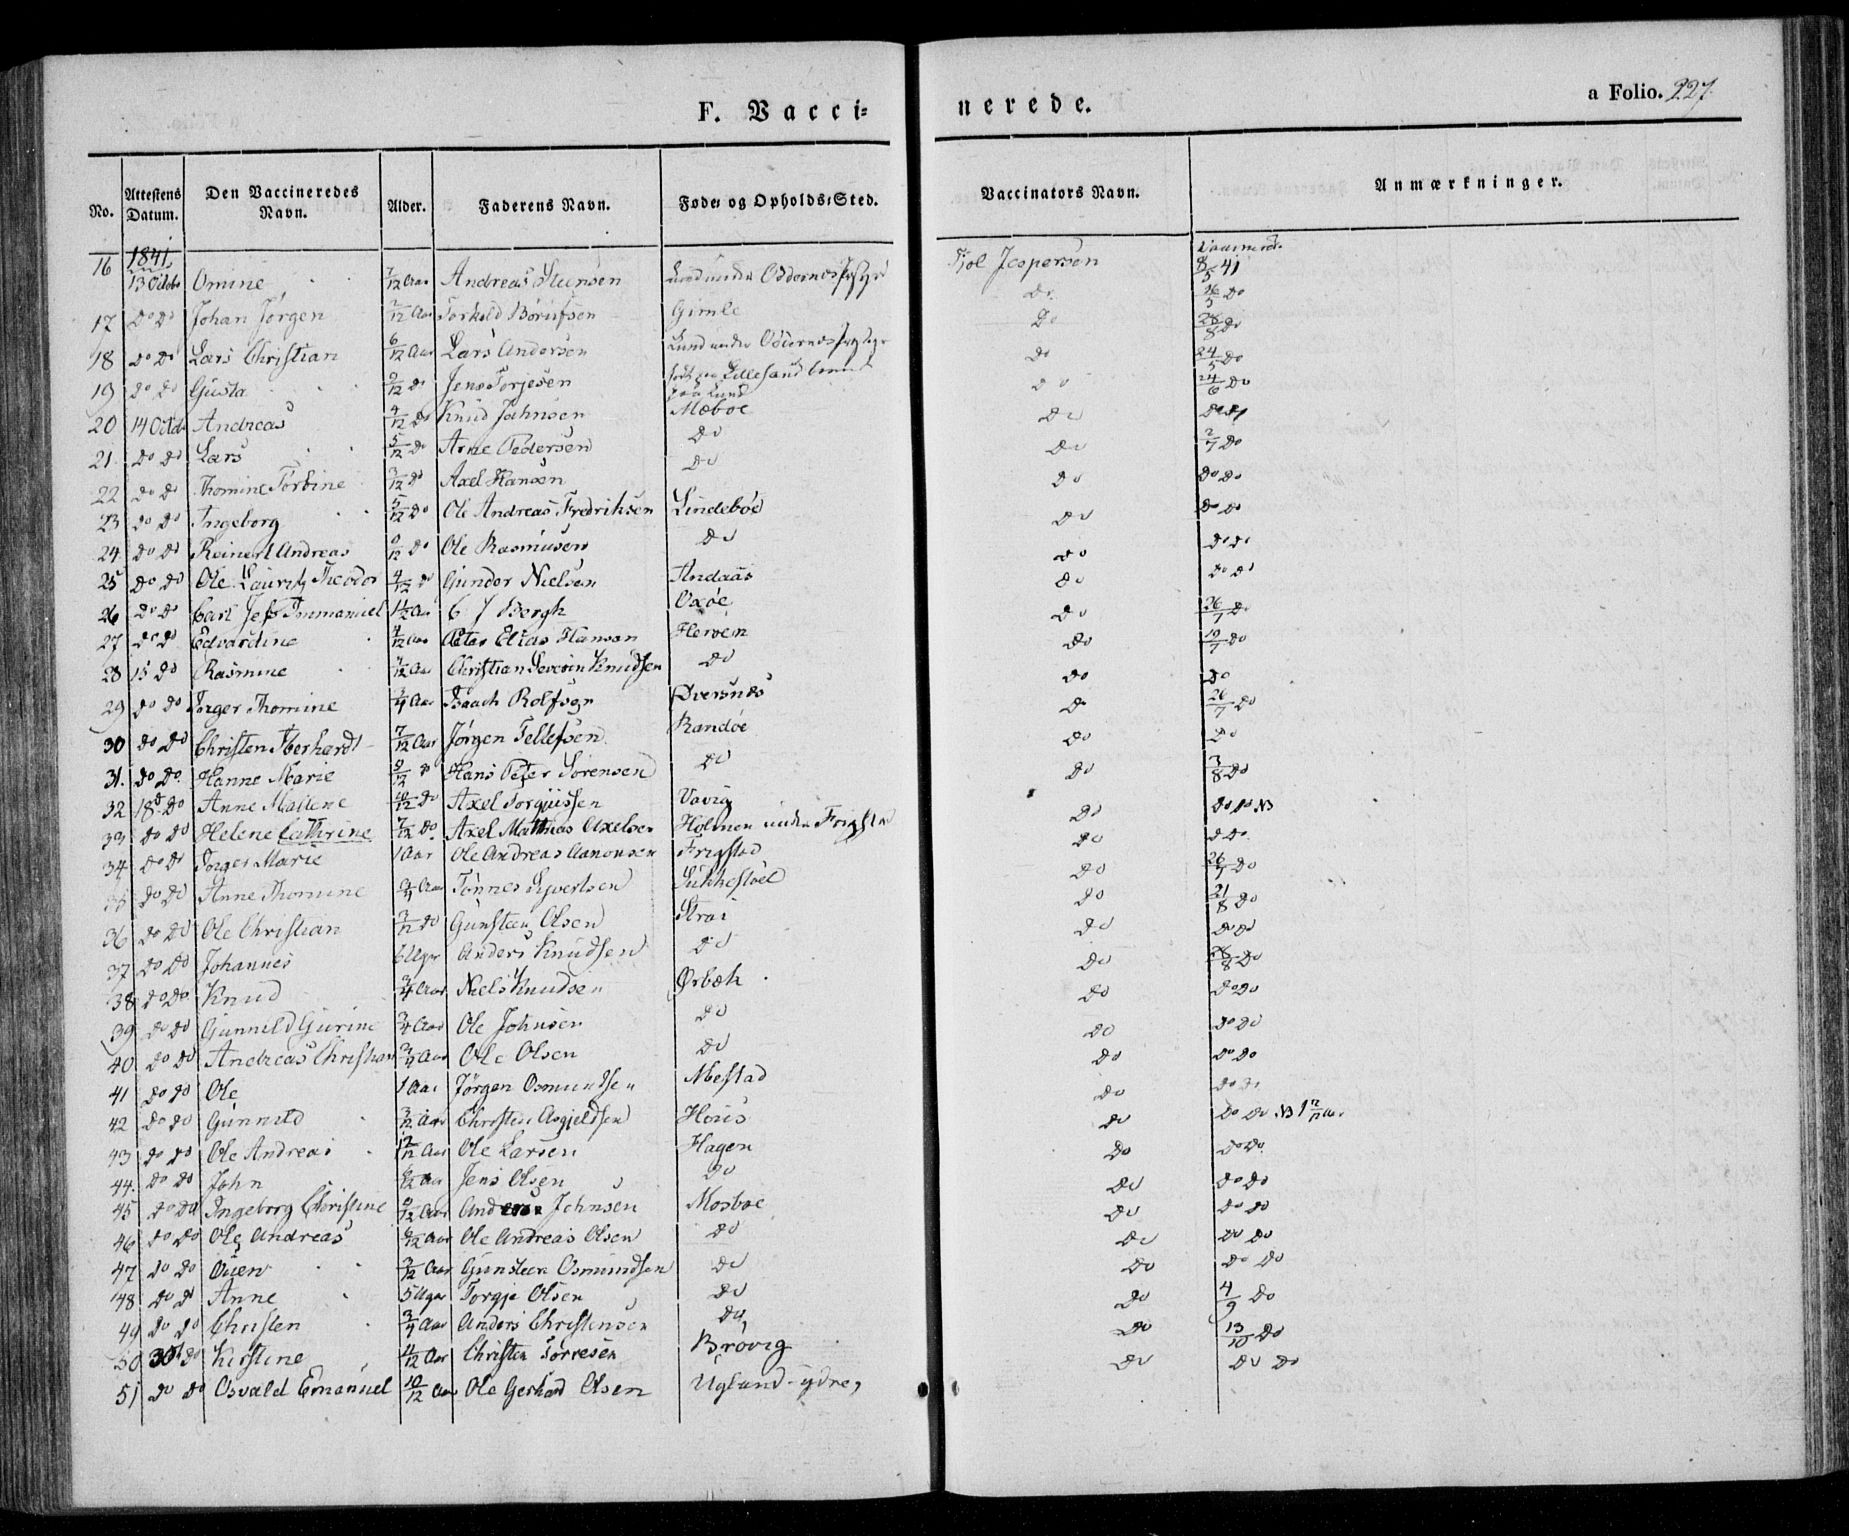 F. Vacci=nerede.
a Folio. 227.
No. Attestens Datum. Den Vaccineredes Navn. Alder. Faderens Navn. Føde= og Opholds=Sted. Vaccinators Navn. Anmærkninger.
1841
16 13 Octbr Omine 7/12 Aar Andreas Stensen Jespersen 8/5 41
17 Do Do Johan Jørgen /12 Aar Gimle Do 26/5 Do
18 Do Do Lars Christian 6/12 Aar Lars Andersen Lund under Do 28/8 Do
19 Do Do Gusta 9/12 Do Jens Torjesen Do 24/5 Do
paa Lund Do 24/6 Do
20 14 Octb Andreas 4/12 Do Knud Jahnsen Mæboe Do Do Do
21 Do Do Lars 5/12 Do Arne Pedersen Do Do 2/7 Do
22 Do Do Thomine Torbine 3/12 Do Axel Hansen Do Do Do Do
23 Do Do Ingeborg 5/12 Do Ole Andreas Fredriksen Lindebøe Do Do Do
24 Do Do Reinert Andreas 9/12 Do Ole Rasmusen Do Do Do Do
25 Do Do Ole Lauritz Theodor 4/12 Do Gunder Nielsen Andaas Do Do Do
26 Do Do Carl Immanuel 1 1/2 Aar C J Bergh Oxøe Do 26/7 Do
27 Do Do Edvardine 4/12 Aar Peter Elias Hansen Do 19/7 Do
28 15 Do Rasmine /12 Aar Christian Severin Knudsen Do Do Do
29 Do Do Torger Thomine 3/4 Aar Isaach Rolfsen Do 26/7 Do
30 Do Do Christen 7/12 Aar Jørgen Tellefsen Randøe Do Do
31. Do Do Hanne Marie 9/12 Do Hans Peter Sørensen Do Do 3/8 Do
32 18d Do Anne Mallene 10/12 Do Axel Torgussen Vovig Do Do Do NB
33 Do Do Helene Cathrine 7/12 Do Axel Matthias Axelsen Holmen under Frigstad Do Do Do
34 Do Do Torger Marie 1 Aar Ole Andreas Aanonsen Frigstad Do 26/7 Do
35 Do Do Anne Thomine 3/4 Aar Tønnes Syvertsen Do 21/8 Do
36 Do Do Ole Christian Do Gunsten Olsen Strai Do Do Do
37 Do Do Johannes 6 Uger Anders Knudsen Do Do 28/8 Do
38 Do Do Knud 3/4 Aar Niels Knudsen Ørbæk Do Do Do
39 Do Do Gunnild Gurine 3/4 Aar Ole Johnsen Do Do Do Do
40 Do Do Andreas Christian 3/4 Aar Ole Olsen Do Do Do Do
41 Do Do Ole 1 Aar Jørgen Osmundsen Mestad Do Do Do
42 Do Do Gunnild Aar Christen Asgjeldsen Do Do Do NB
43 Do Do Ole Andreas /12 Aar Ole Larsen Hagen Do Do Do
44. Do Do John 6/12 Aar Jens Olsen Do Do Do Do
45 Do Do Ingeborg Christine /12 Aar Anders Johnsen Mosboe Do Do Do
46 Do Do Ole Andreas 6/12 Aar Ole Andreas Olsen Do Do Do Do
47 Do Do Ouen /12 Aar Gunsten Osmundsen Do Do Do Do
48 Do Do Anne 5 Uger Torgje Olsen Do Do 4/9 Do
49 Do Do Christen 3/4 Aar Anders Christensen Do Do 13/10 Do
50 30 Do Kirstine 4/12 Aar Christen Torresen Brøvig Do Do Do
51 Do Do Osvald Emanuel 10/12 Aar Ole Gerhard Olsen Ugland-ydre,